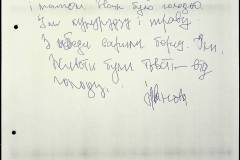 і татом. Нам було голодно.
Їли кукурудзу і траву.
З лободи варили борщ. Їли.
Животи були товсті від
голоду.